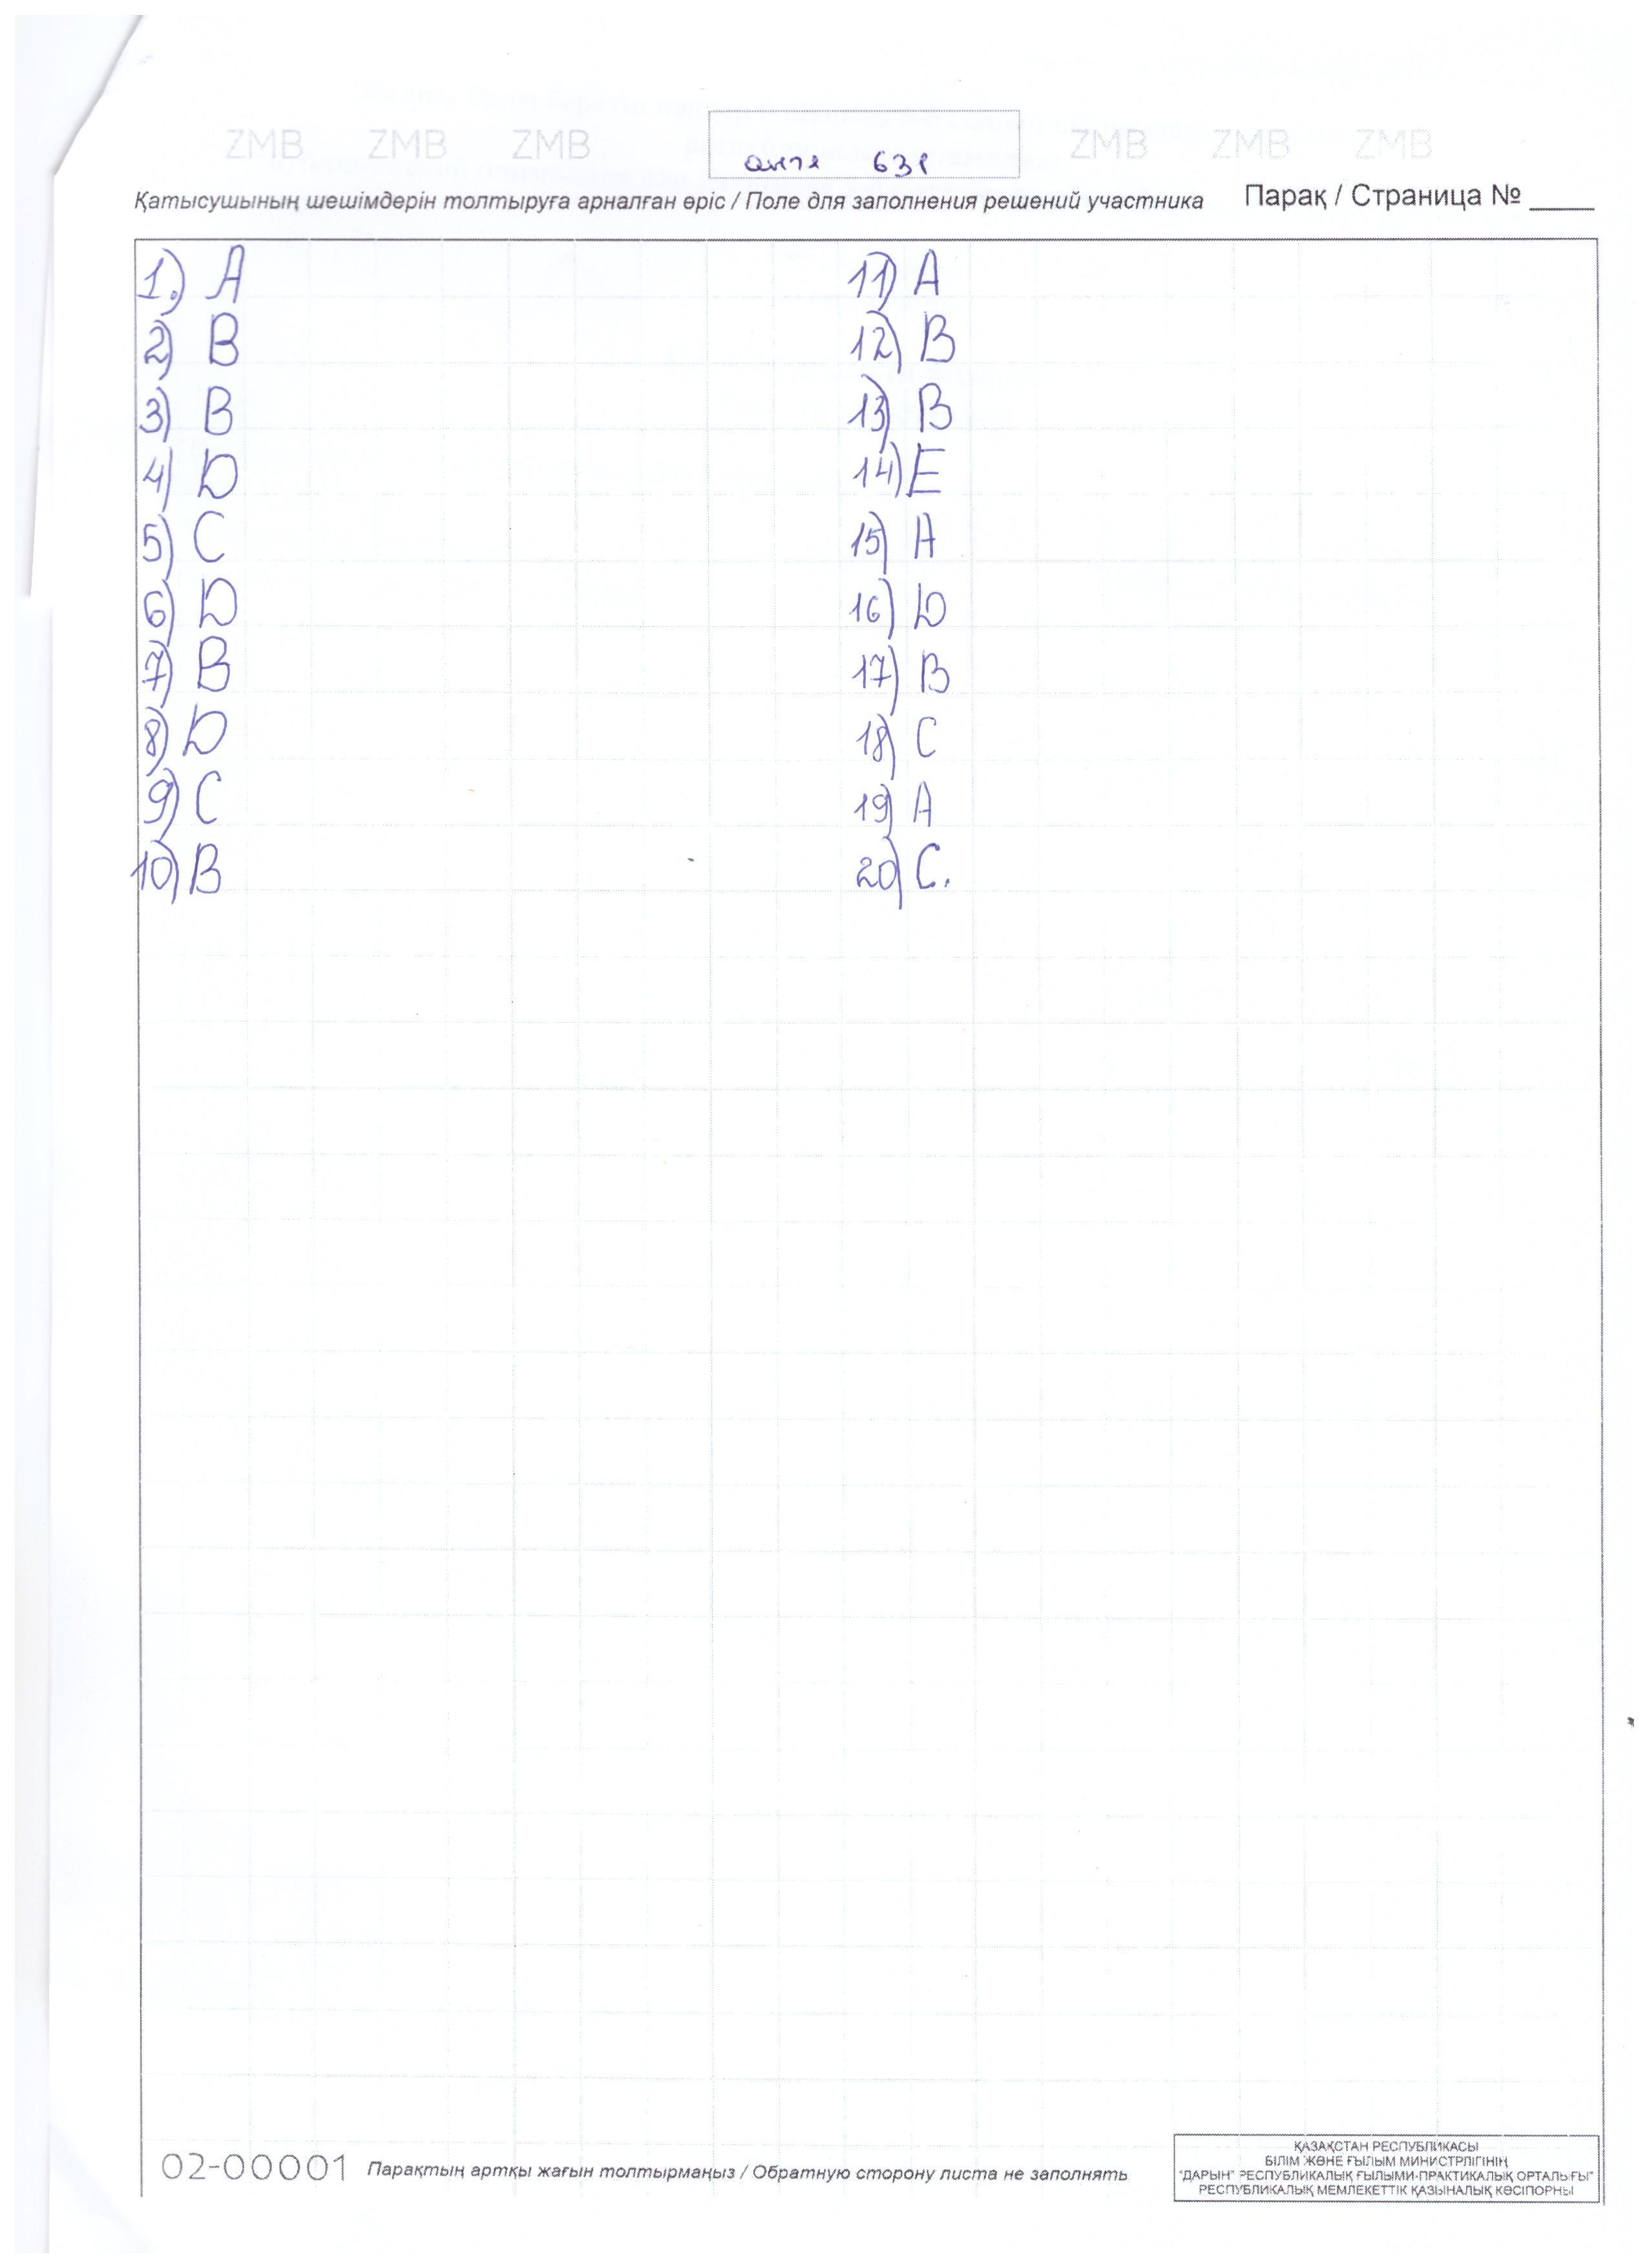 ZMB ZMB ZMB ZMB ZMB ZMB
631
Қатысушының шешімдерін толтыруға арналған өріс / Поле для заполнения решений участника Парақ / Страница № ____
1.) A
2) B
3) B
4) D
5) C
6) D
7) B
8) D
9) C
10) B
11) A
12) B
13) B
14) E
15) A
16) D
17) B
18) C
19) A
20) C.
02-00001 Парақтың артқы жағын толтырмаңыз / Обратную сторону листа не заполнять
ҚАЗАҚСТАН РЕСПУБЛИКАСЫ
БІЛІМ ЖӘНЕ ҒЫЛЫМ МИНИСТРЛІГІНІҢ
"ДАРЫН" РЕСПУБЛИКАЛЫҚ ҒЫЛЫМИ-ПРАКТИКАЛЫҚ ОРТАЛЫҒЫ"
РЕСПУБЛИКАЛЫҚ МЕМЛЕКЕТТІК ҚАЗЫНАЛЫҚ КӘСІПОРНЫ